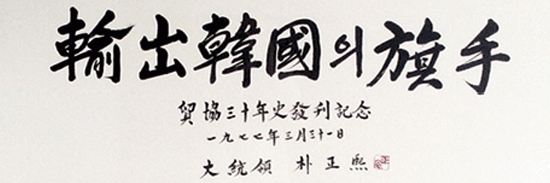 輸出韓國의旗手
貿協三十年史發刊記念
一九七七年三月三十一日
大統領 朴正熙